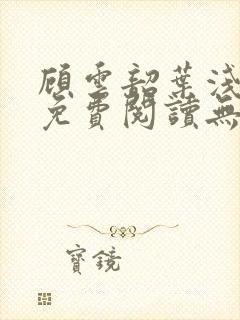 顧雲韶葉淺
免費閱讀無
寶鏡